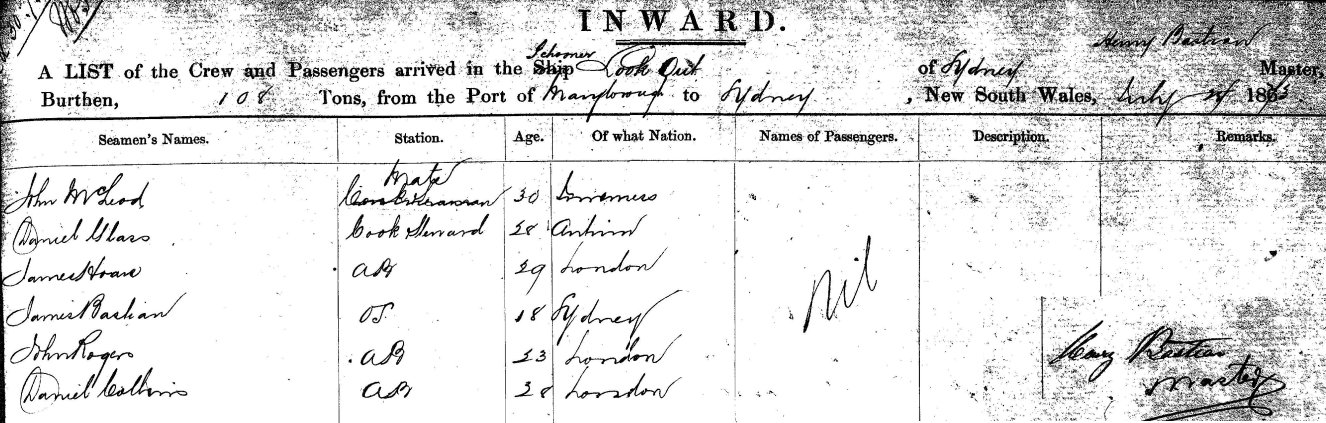 INWARD.
Henry Bastian
Schooner
A LIST of the Crew and Passengers arrived in the Ship Look Out of Sydney Master,
Burthen, 108 Tons, from the Port of Maryborough to Sydney, New South Wales, July 1863.
Seamen's Names. Station. Age. Of what Nation. Names of Passengers. Description. Remarks.
Mate
John McLeod 30 Inverness
Daniel Glass Cook Steward 28 Antrim
James Hoare AB 29 London
James Bastian OS 18 Sydney
Nil
John Rogers AB 23 London
Henry Bastian
Daniel Collins AB 28 London
Master